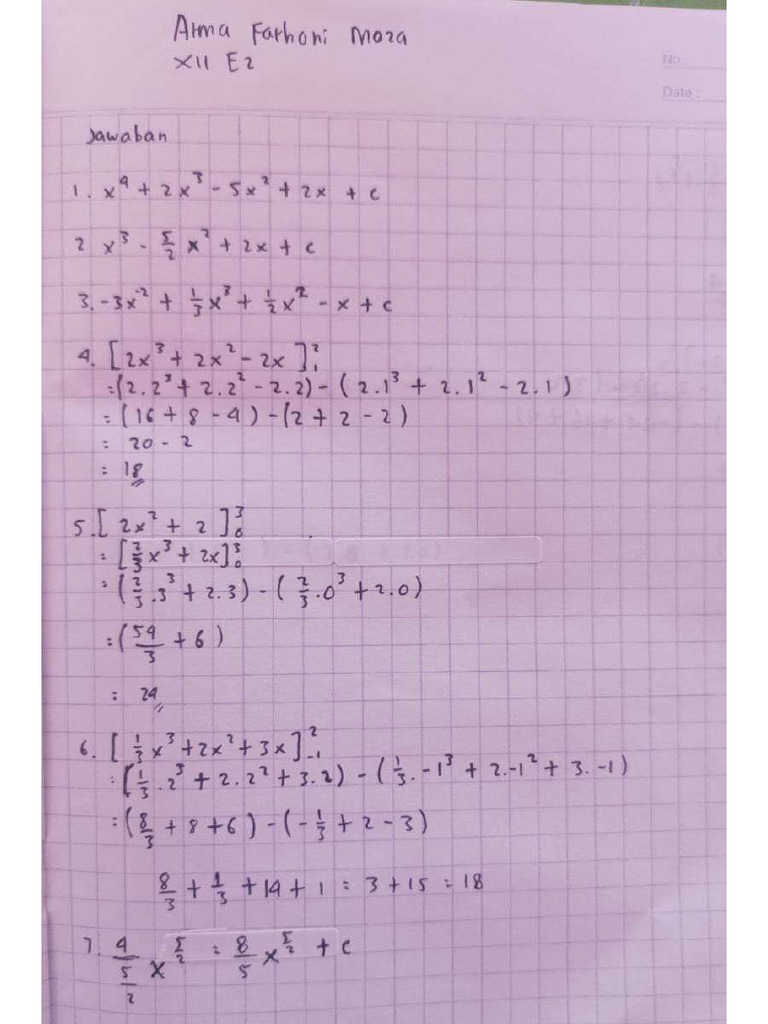 Arma Farhoni Moza
XII E2
No.
Date :
Jawaban
1. x⁴ + 2x³ - 5x² + 2x + c
2 x³ - 5/2 x² + 2x + c
3. -3x⁻² + 1/3 x³ + 1/2 x² - x + c
4. [2x³ + 2x² - 2x]₁²
= (2.2³ + 2.2² - 2.2) - (2.1³ + 2.1² - 2.1)
= (16 + 8 - 4) - (2 + 2 - 2)
= 20 - 2
= 18
5. [2x² + 2]₀³
= [2/3 x³ + 2x]₀³
= (2/3 .3³ + 2.3) - (2/3 .0³ + 2.0)
= (54/3 + 6)
= 24
6. [1/3 x³ + 2x² + 3x]₋₁²
= (1/3 .2³ + 2.2² + 3.2) - (1/3 . -1³ + 2.-1² + 3.-1)
= (8/3 + 8 + 6) - (-1/3 + 2 - 3)
8/3 + 1/3 + 14 + 1 = 3 + 15 = 18
7. 4/(5/2) x^(5/2) = 8/5 x^(5/2) + c